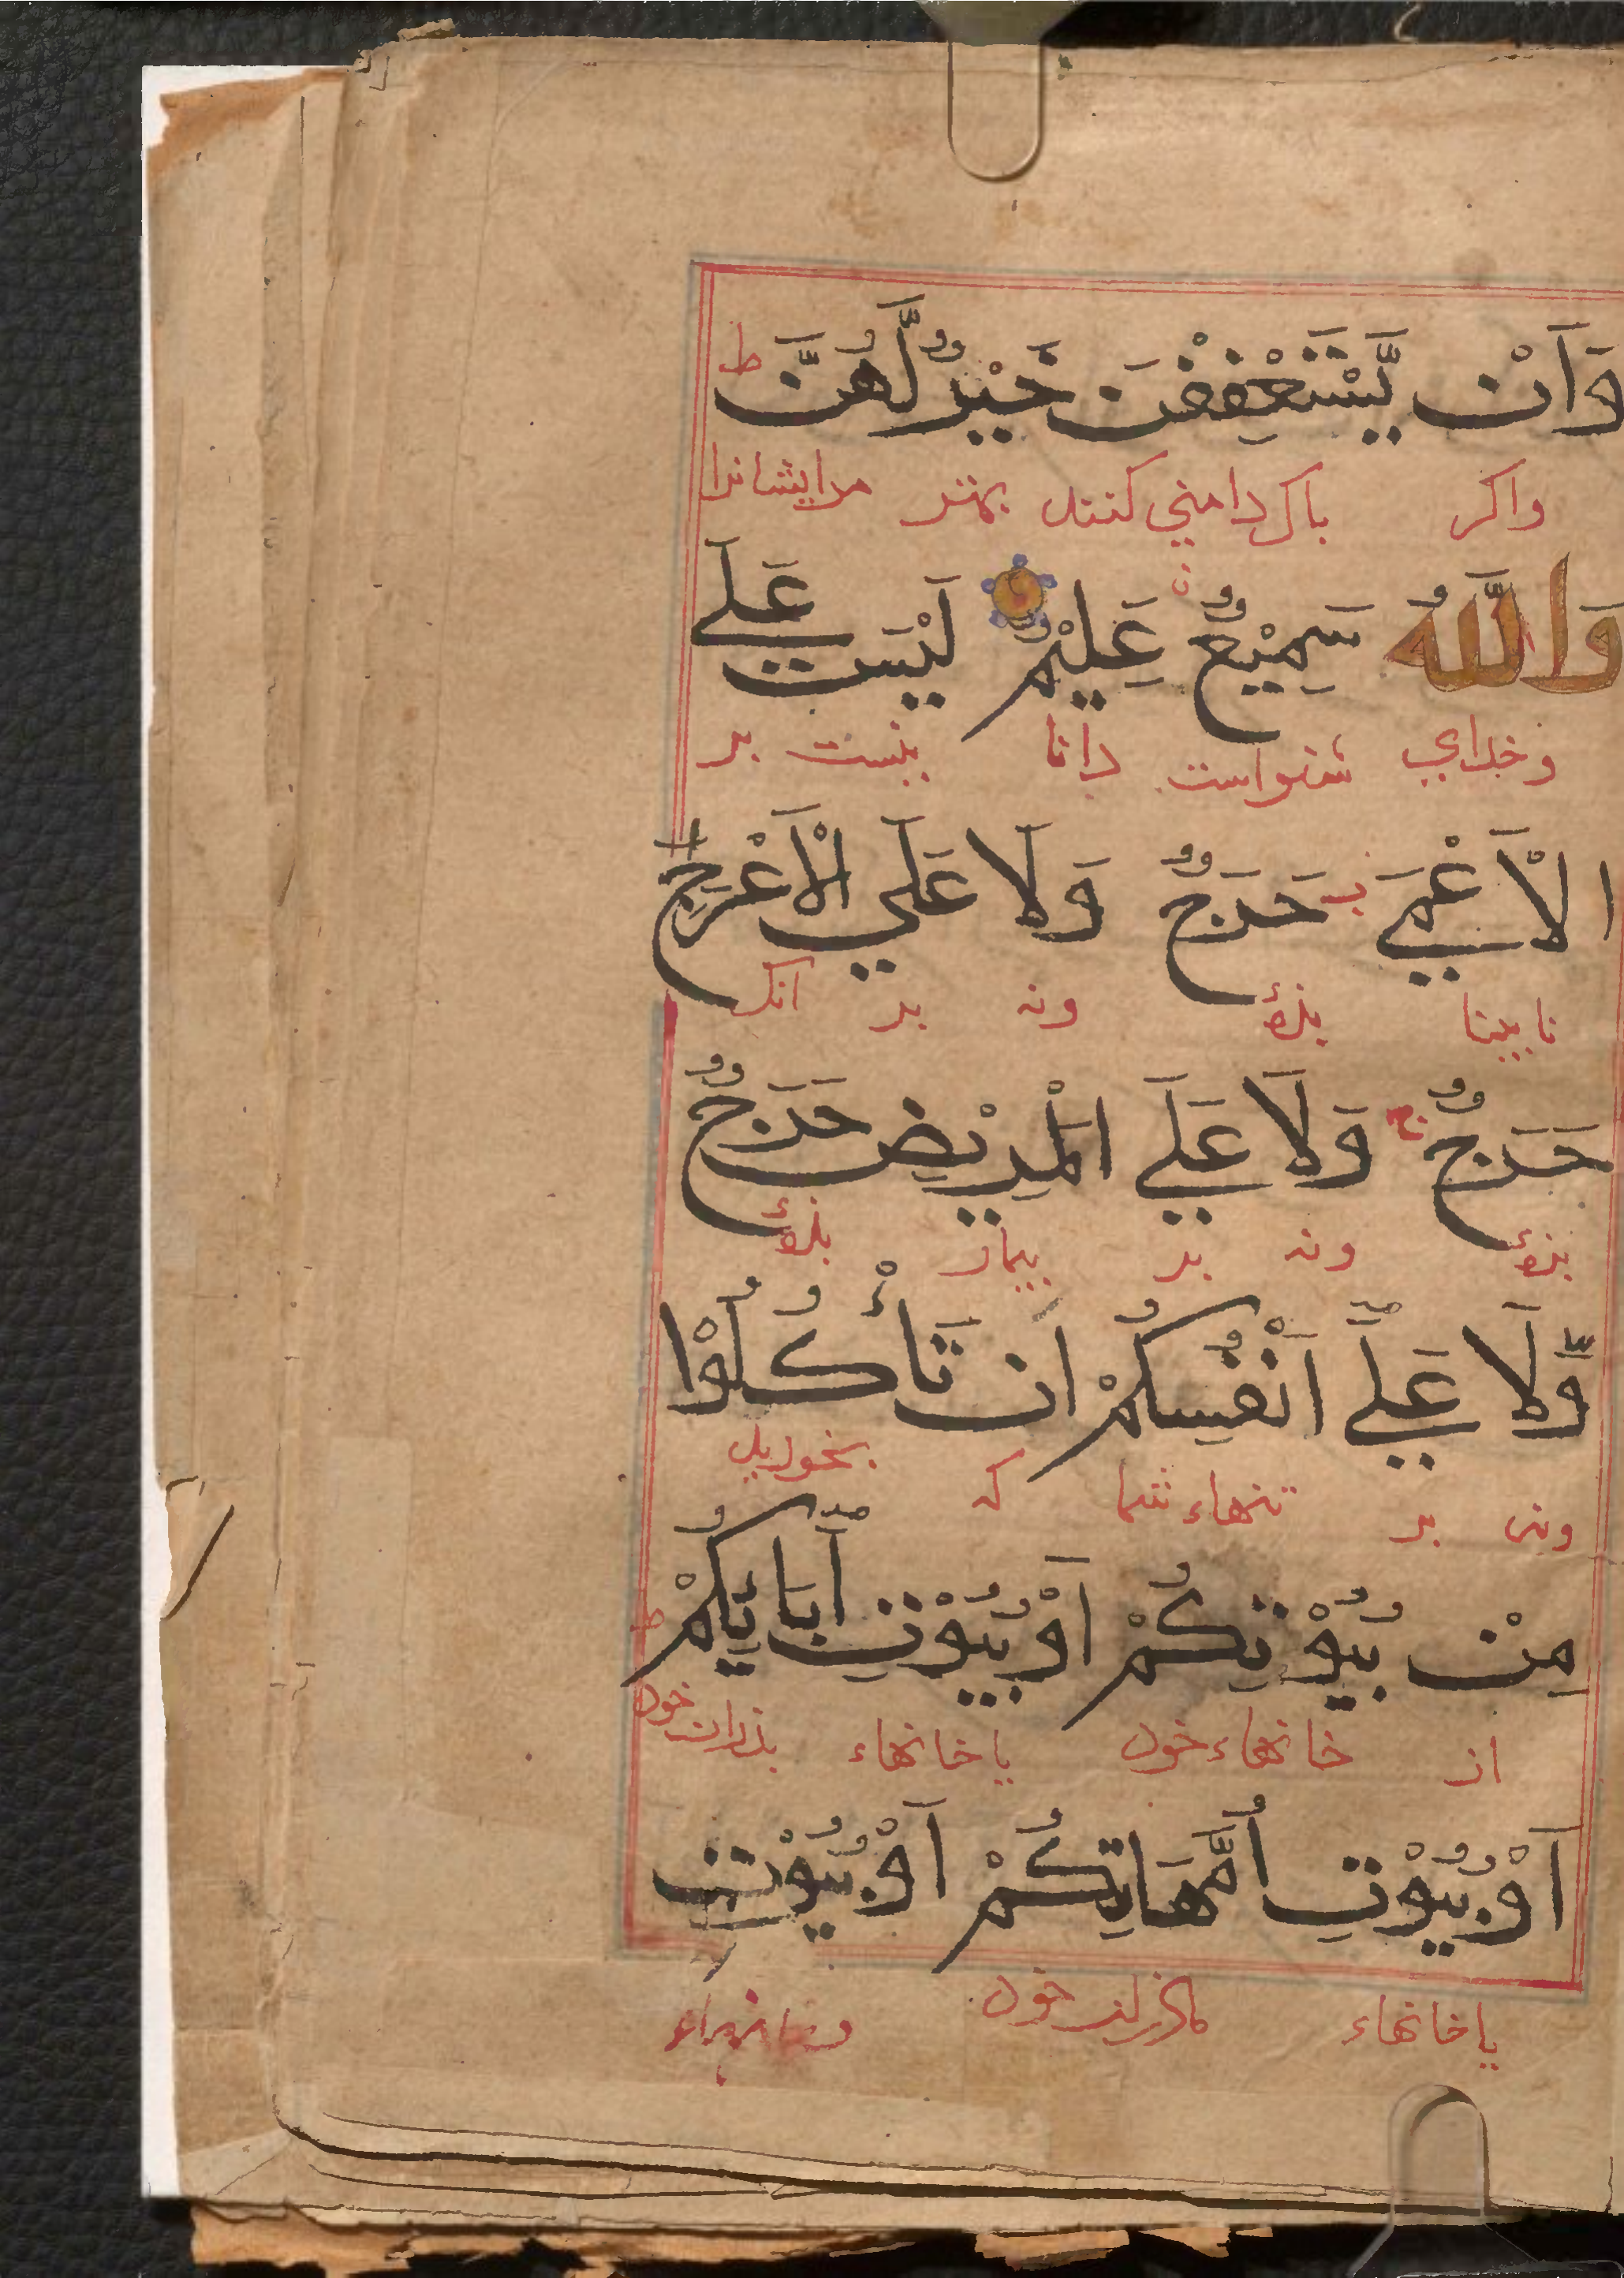 وَاَنْ يَّسْتَعْفِفْنَ خَيْرٌ لَّهُنَّ ط
واكر باك دامني كنند بهتر مرايشانرا
وَاللّٰهُ سَمِيْعٌ عَلِيْمٌ لَيْسَ عَلَي
وخداي شنواست دانا نيست بر
الْاَعْمٰي حَرَجٌ وَلَا عَلَي الْاَعْرَجِ
نابينا بزۀ ونه بر لنك
حَرَجٌ وَلَا عَلَي الْمَرِيْضِ حَرَجٌ
بزۀ ونه بر بيمار بزۀ
وَّلَا عَلَيٓ اَنْفُسِكُمْ اَنْ تَأْكُلُوْا
ونه بر تنهاء شما كه بخوريد
مِنْ بُيُوْتِكُمْ اَوْ بُيُوْتِ اٰبَآئِكُمْ ط
از خانهاء خود يا خانهاء بذران خود
اَوْ بُيُوْتِ اُمَّهَاتِكُمْ اَوْ بُيُوْتِ
يا خانهاء ماذران خود